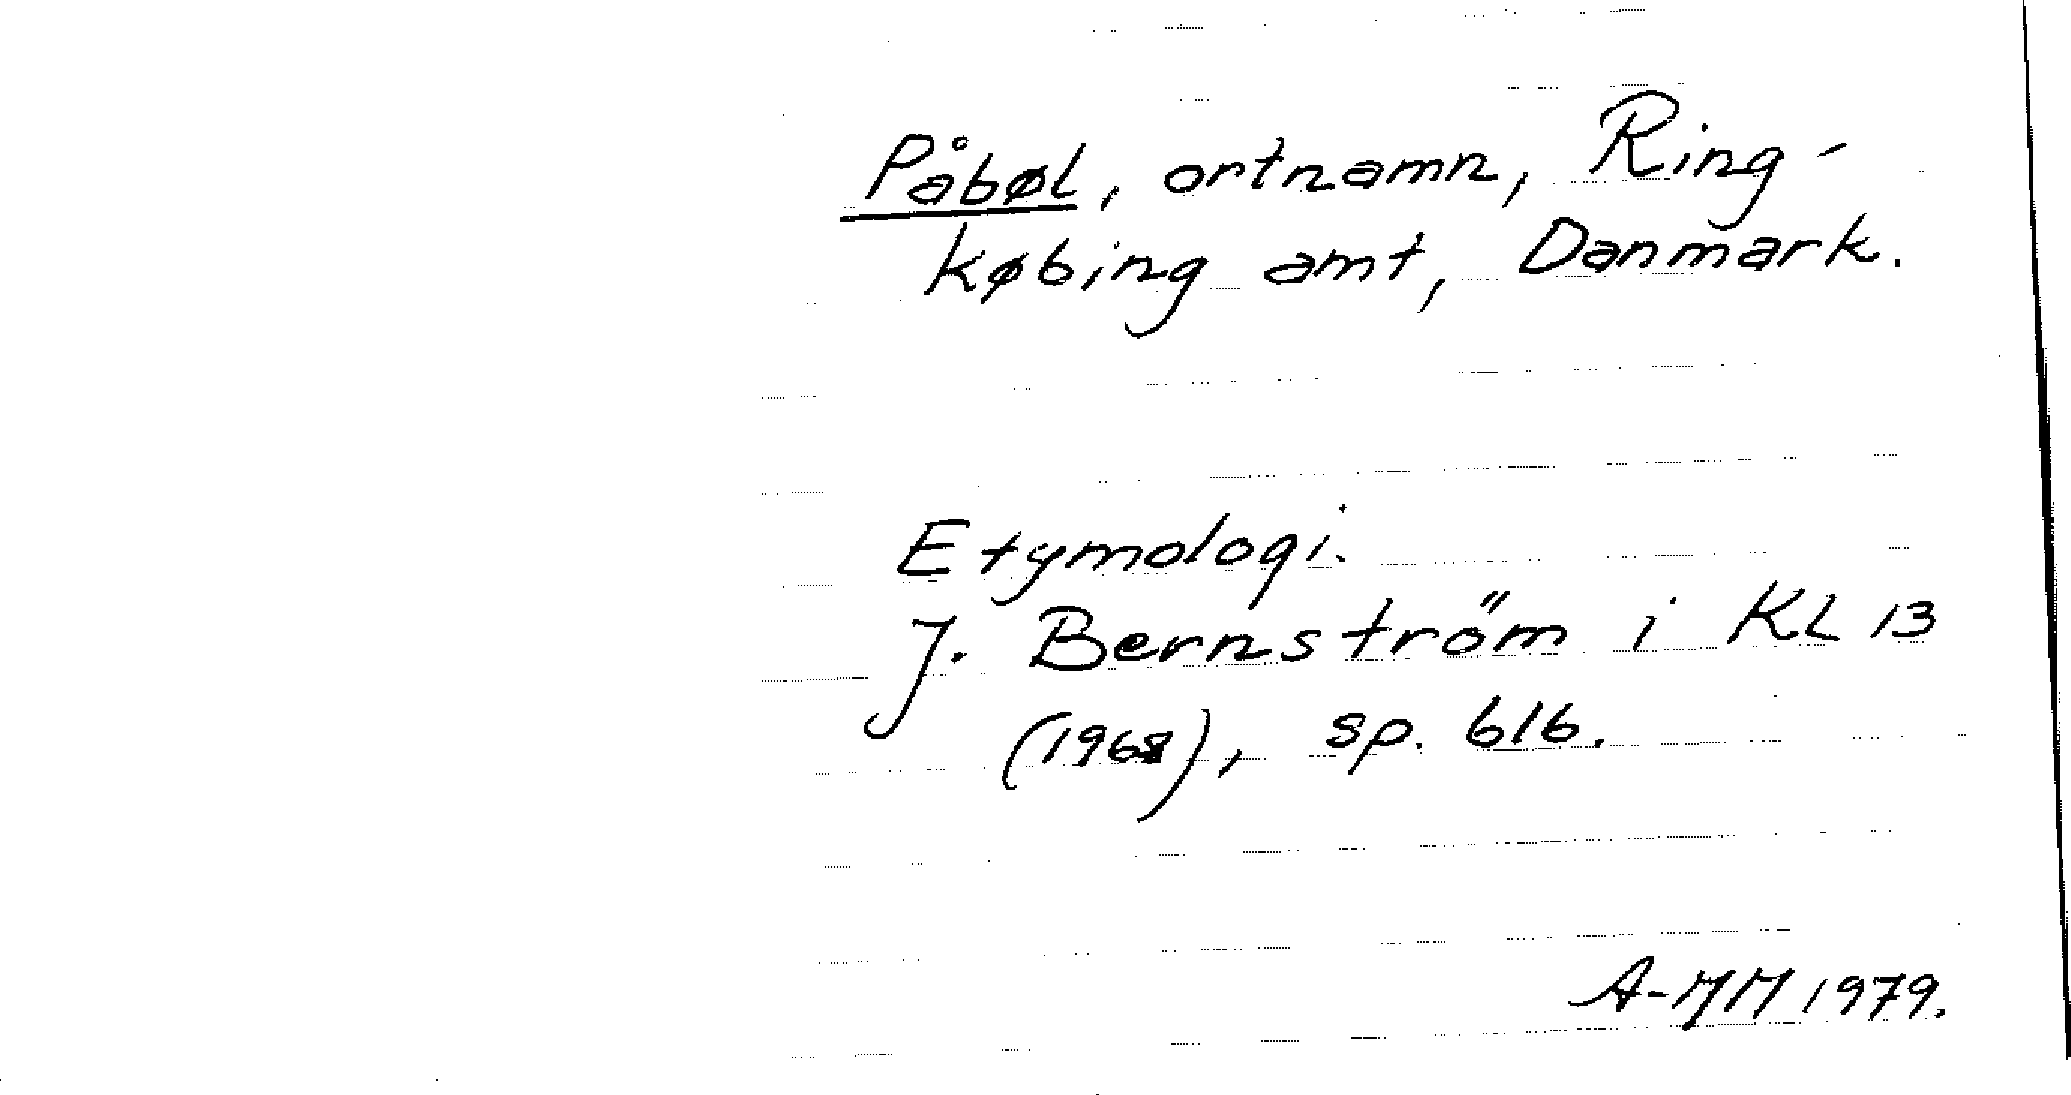 Påbøl, ortnamn, Ring-
købing amt, Danmark.
Etymologi.
J. Bernström i KL 13
(1968), sp. 616.
A-MM 1979.